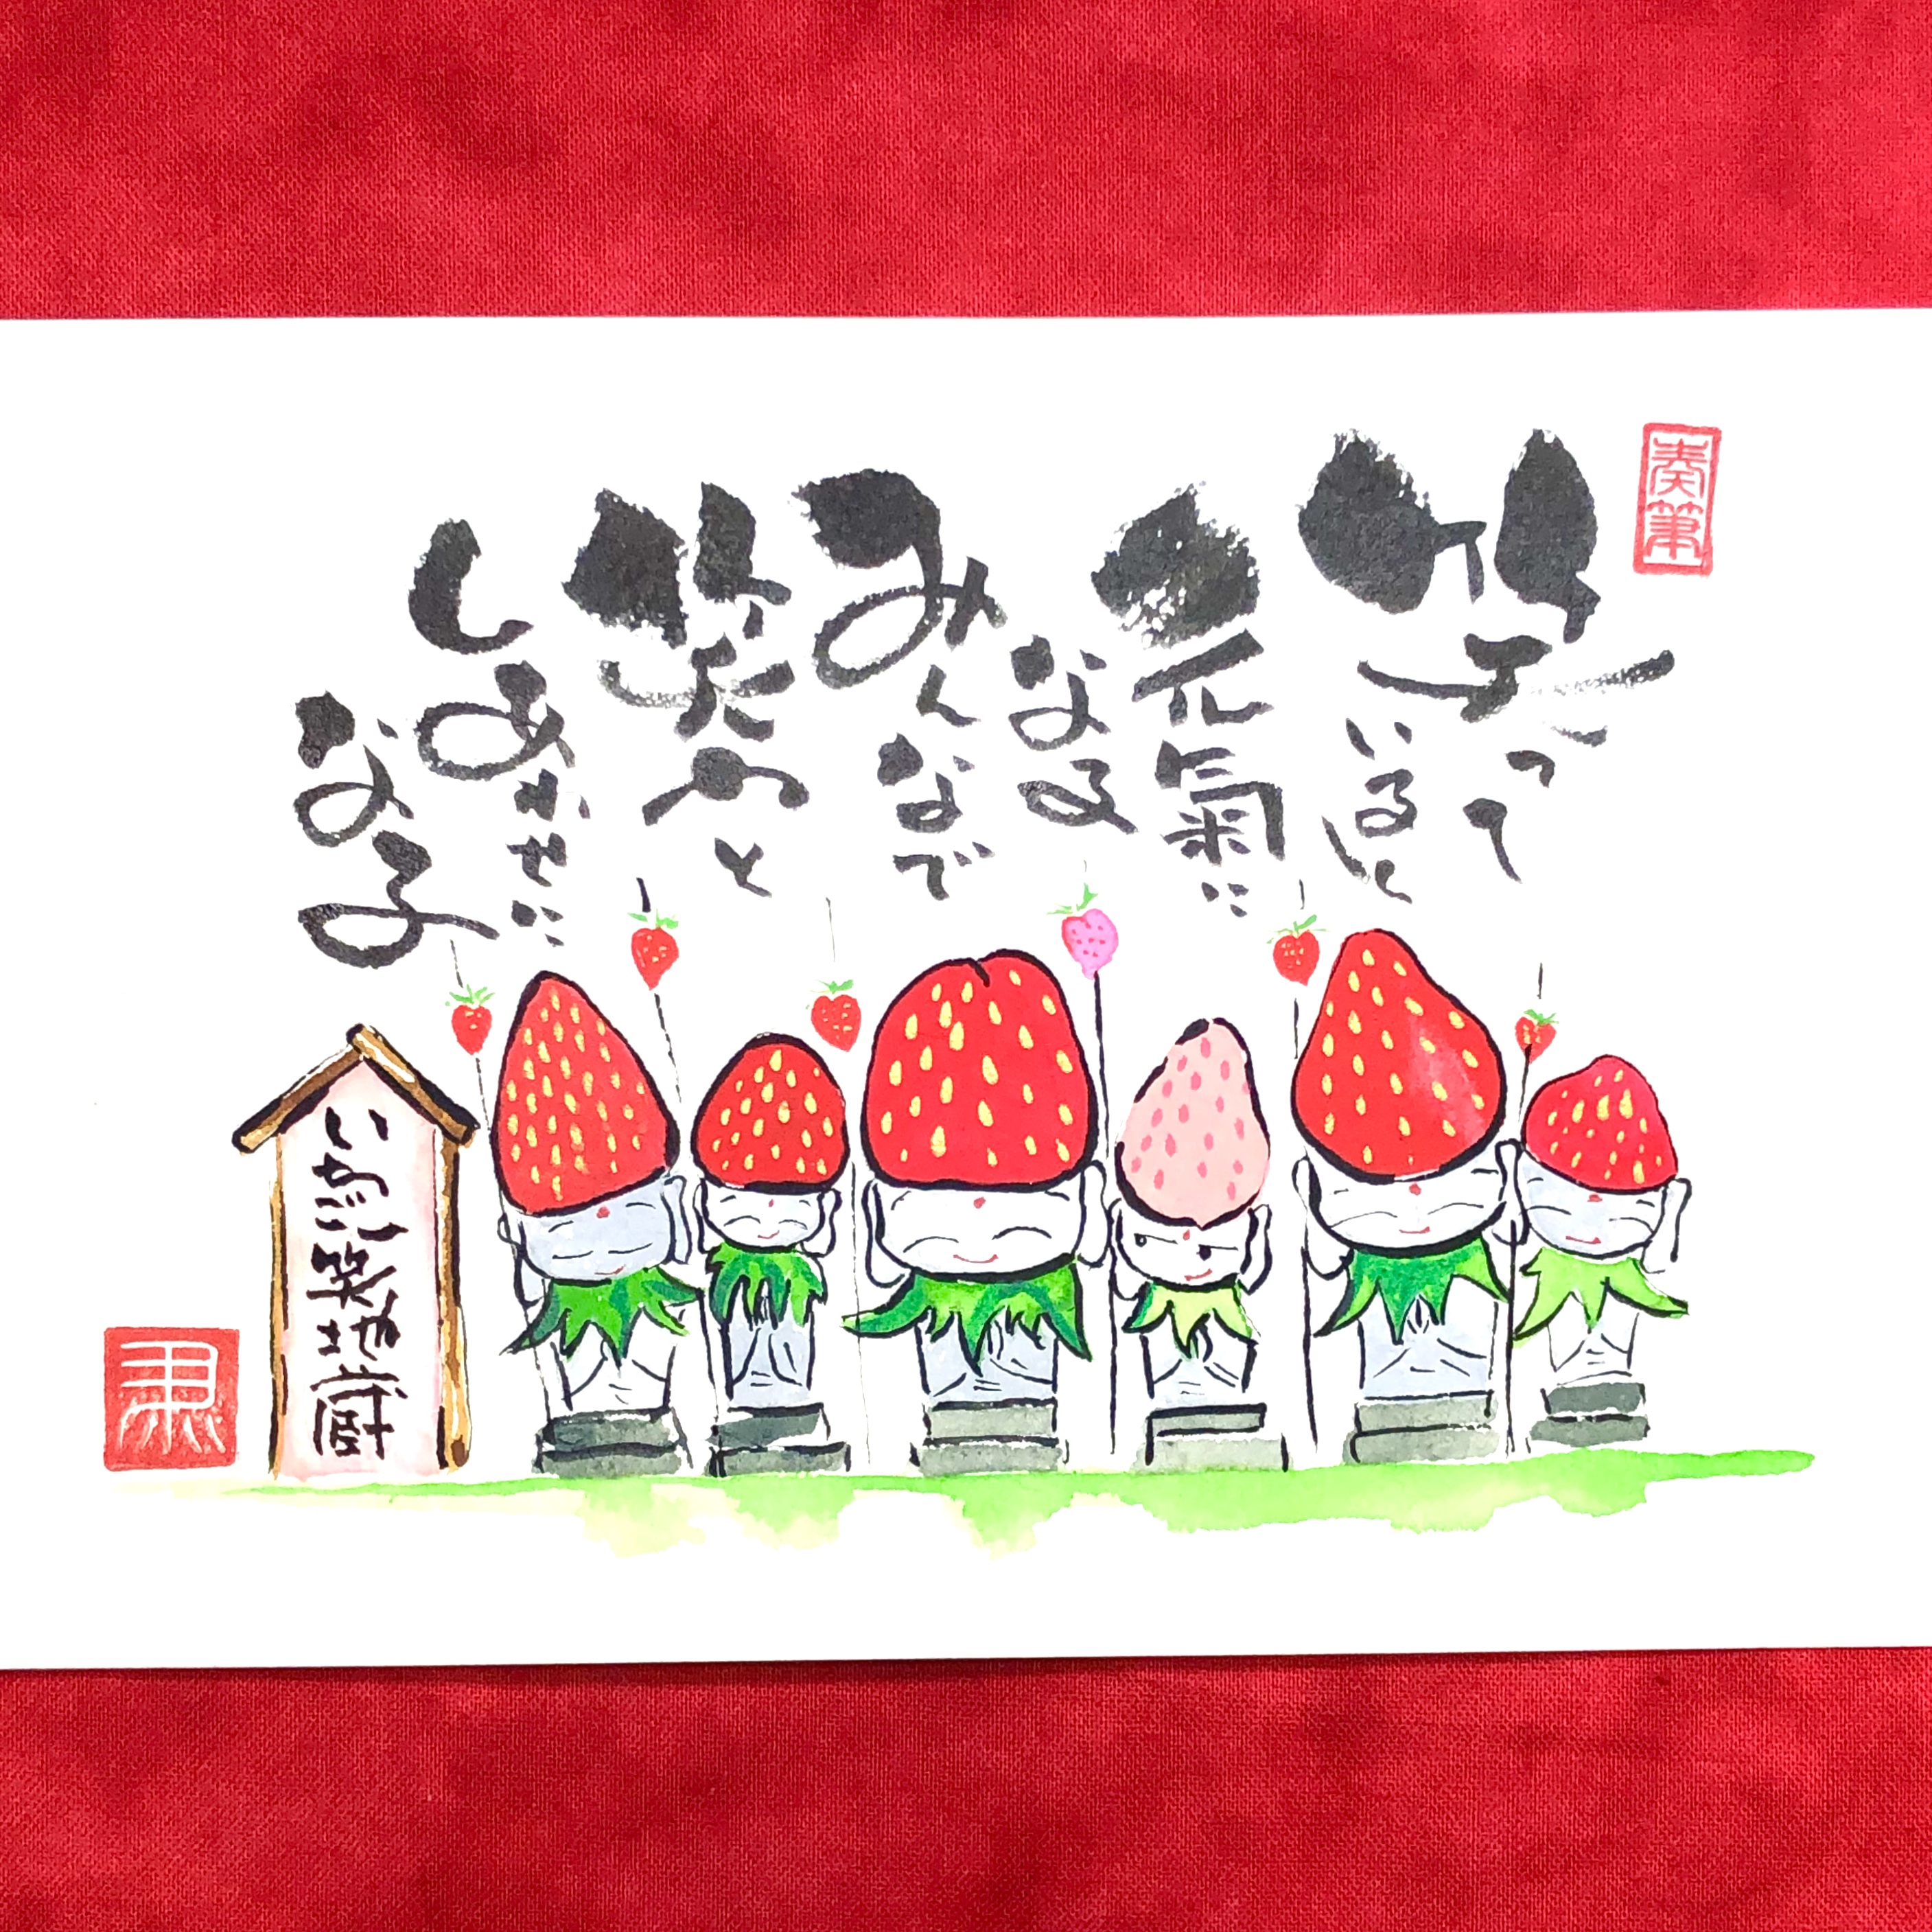 奏筆
笑って
いると
元氣に
なる
みんなで
笑ふと
しあわせに
なる
いちご笑地蔵